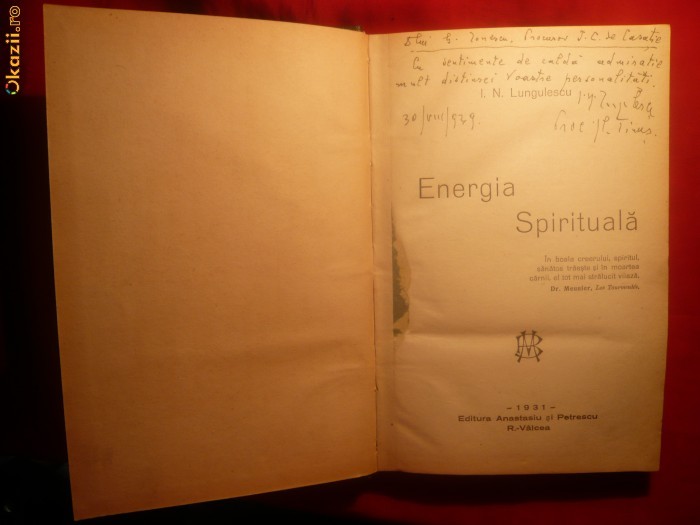 Okazii.ro
Dlui G. Ionescu, Procuror I. C. de Casație
Cu sentimente de caldă admirație
mult distinsei voastre personalități.
I. N. Lungulescu
30/VIII/929.
Energia
Spirituală
În boala creerului, spiritul,
sănătos trăește și în moartea
cărnii, el tot mai strălucit viază.
Dr. Meusier, Les Tourmentés.
– 1931 –
Editura Anastasiu și Petrescu
R.-Vâlcea